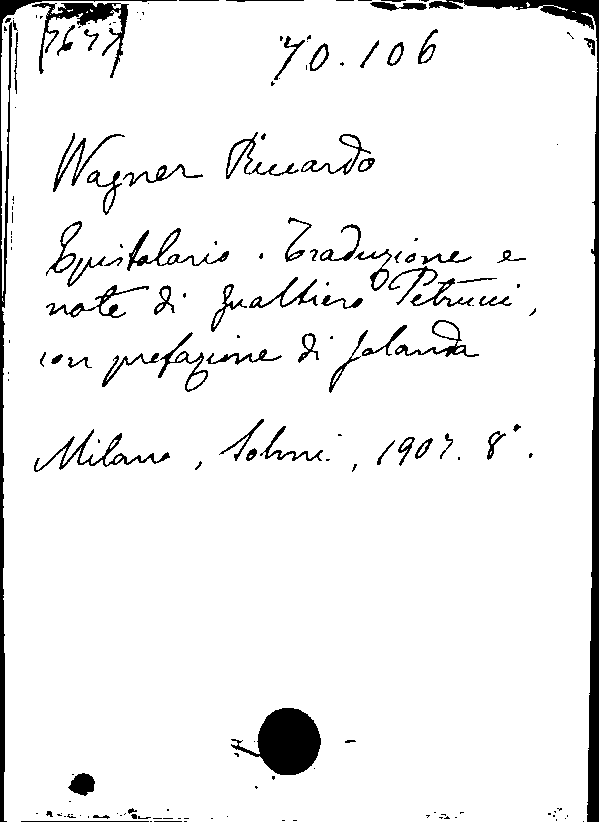 7677
70.106
Wagner Riccardo
Epistolario. Traduzione e
note di Gualtiero Petrucci,
con prefazione di Jolanda
Milano, Solmi, 1907. 8°.